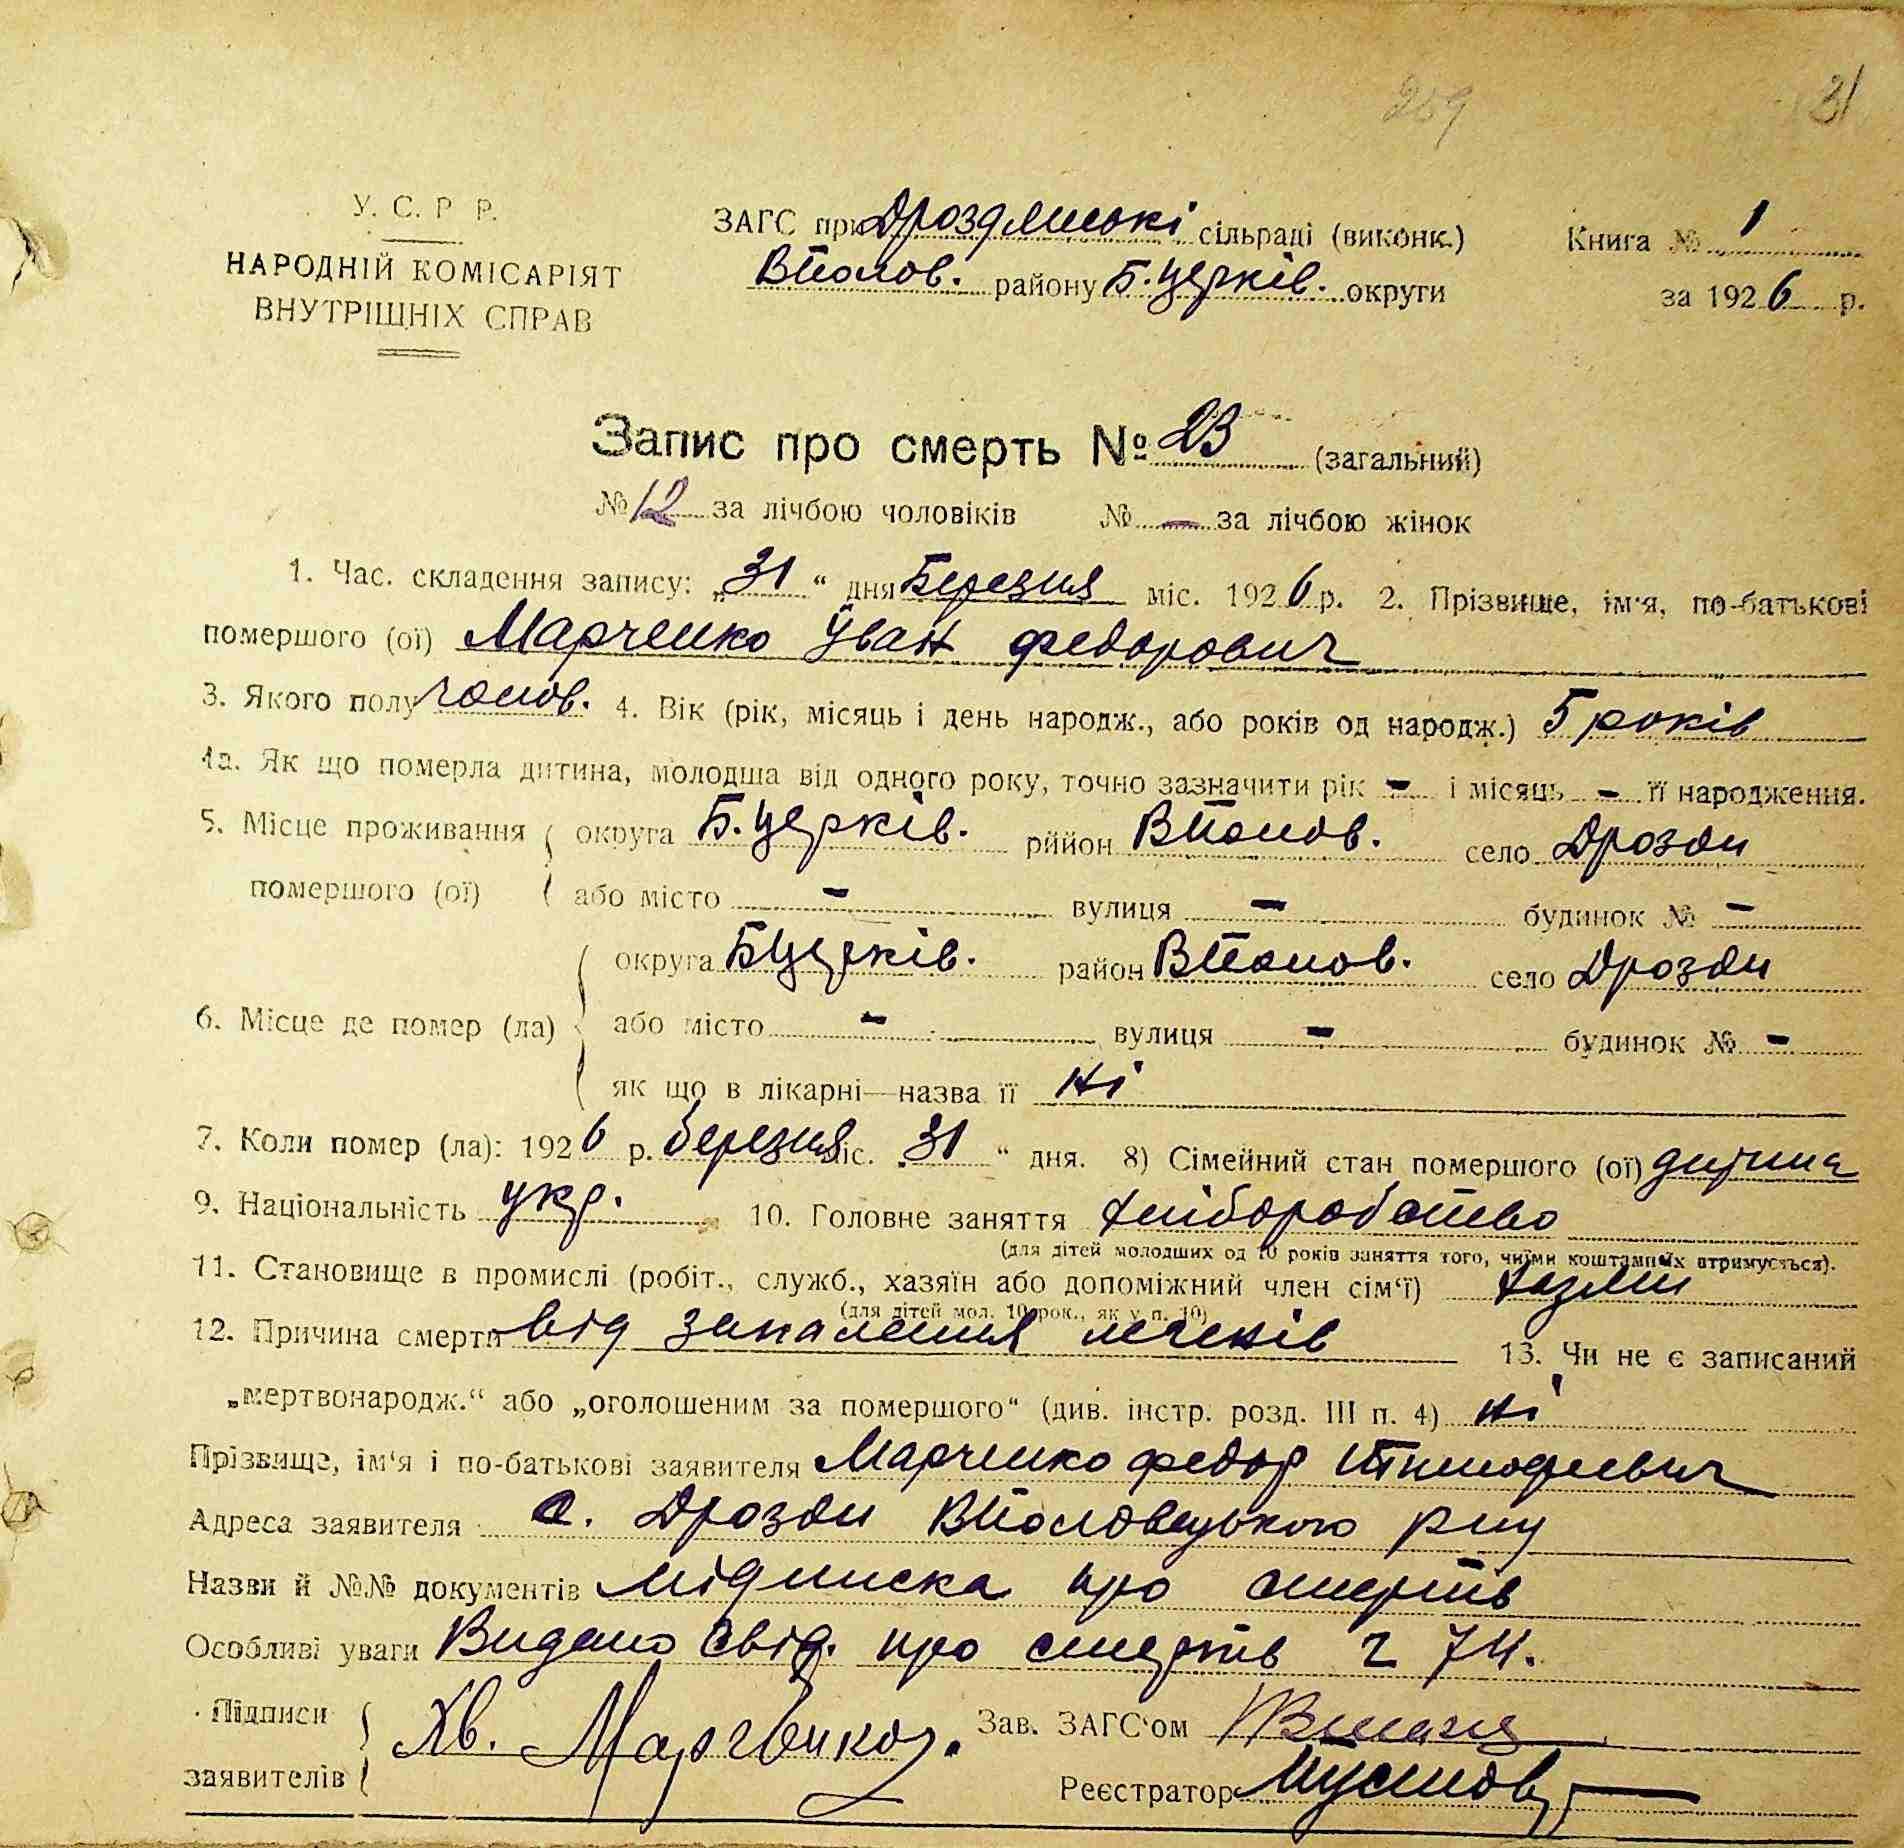 259 31
У. С. Р Р.
НАРОДНІЙ КОМІСАРІЯТ
ВНУТРІШНІХ СПРАВ
ЗАГС при Дроздянські сільраді (виконк.)
ВПолов. району Б.Церків. округи
Книга № 1
за 1926 р.
Запис про смерть № 23 (загальний)
№ 12 за лічбою чоловіків № - за лічбою жінок
1. Час. складення запису: „31“ дня Березня міс. 1926 р. 2. Прізвище, ім'я, по-батькові
помершого (ої) Марченко Іван Федорович
3. Якого полу чолов. 4. Вік (рік, місяць і день народж., або років од народж.) 5 років
4а. Як що померла дитина, молодша від одного року, точно зазначити рік - і місяць - її народження.
5. Місце проживання округа Б.Церків. рййон ВПолов. село Дрозди
помершого (ої) або місто - вулиця - будинок № -
округа БЦерків. район ВПолов. село Дрозди
6. Місце де помер (ла) або місто - вулиця - будинок № -
як що в лікарні—назва її ні
7. Коли помер (ла): 1926 р. березня міс. „31“ дня. 8) Сімейний стан помершого (ої) дитина
9. Національність укр. 10. Головне заняття хліборобство
(для дітей молодших од 10 років заняття того, чиїми коштами їх втримується).
11. Становище в промислі (робіт., служб., хазяїн або допоміжний член сім'ї) хазяїн
(для дітей мол. 10 рок., як у п. 10)
12. Причина смерти від запалення легенів 13. Чи не є записаний
„мертвонародж.“ або „оголошеним за помершого“ (див. інстр. розд. III п. 4) ні
Прізвище, ім'я і по-батькові заявителя Марченко Федор Тимофієвич
Адреса заявителя с. Дрозди ВПоловецького рну
Назви й №№ документів підписка про смерть
Особливі уваги Видано свід. про смерть ч 74.
Підписи Хв. Марченко. Зав. ЗАГС'ом
заявителів Реєстратор